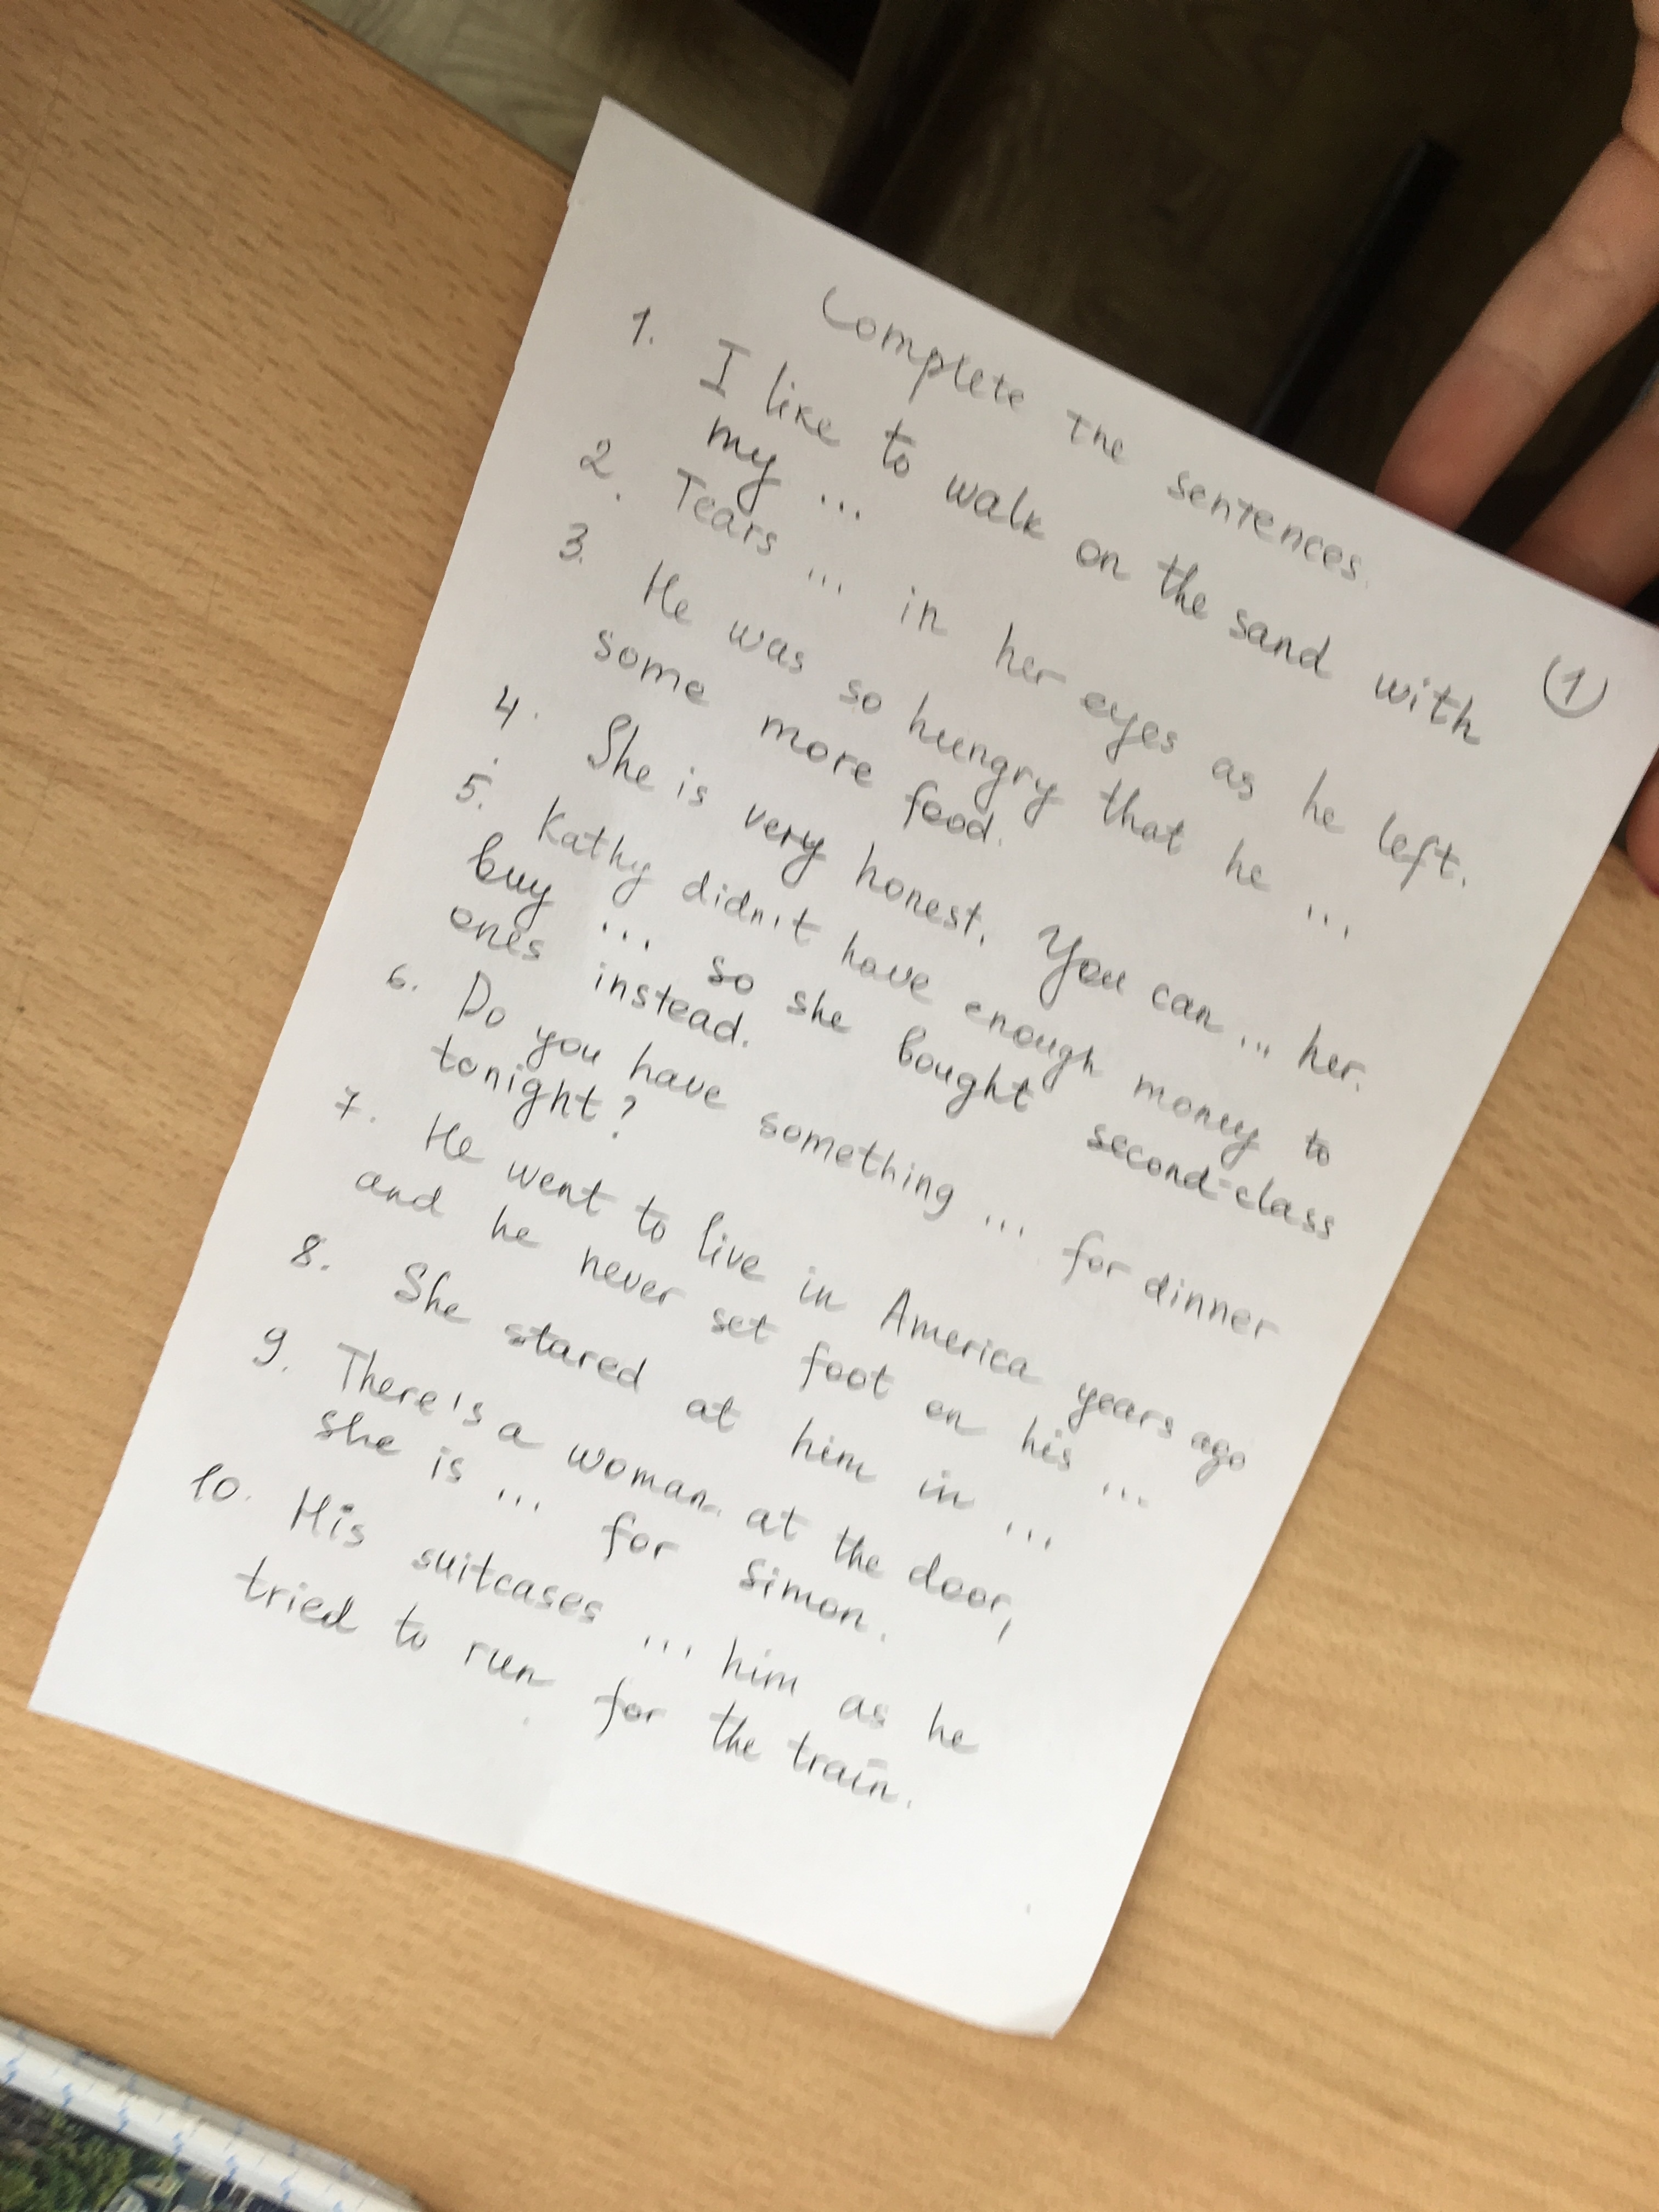 Complete the sentences.
(1)
1. I like to walk on the sand with
my ...
2. Tears ... in her eyes as he left.
3. He was so hungry that he ...
some more food.
4. She is very honest. You can ... her.
5. Kathy didn't have enough money to
buy ... so she bought second-class
ones instead.
6. Do you have something ... for dinner
tonight?
7. He went to live in America years ago
and he never set foot on his ...
8. She stared at him in ...
9. There's a woman at the door,
she is ... for Simon.
10. His suitcases ... him as he
tried to run for the train.